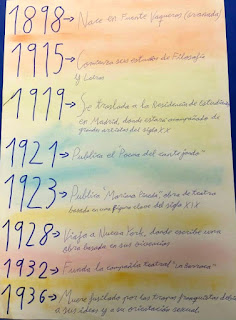 1898→ Nace en Fuente Vaqueros (Granada)
1915→ Comienza sus estudios de Filosofía
y Letras
1919→ Se traslada a la Residencia de Estudiantes
en Madrid, donde estará acompañado de
grandes artistas del siglo XIX
1921→ Publica el "Poema del cante jondo"
1923→ Publica "Mariana Pineda", obra de teatro
basada en una figura clave del siglo XIX
1928→ Viaja a Nueva York, donde escribe una
obra basada en sus vivencias
1932→ Funda la compañía teatral "La Barraca"
1936→ Muere fusilado por las tropas franquistas debido
a sus ideas y a su orientación sexual